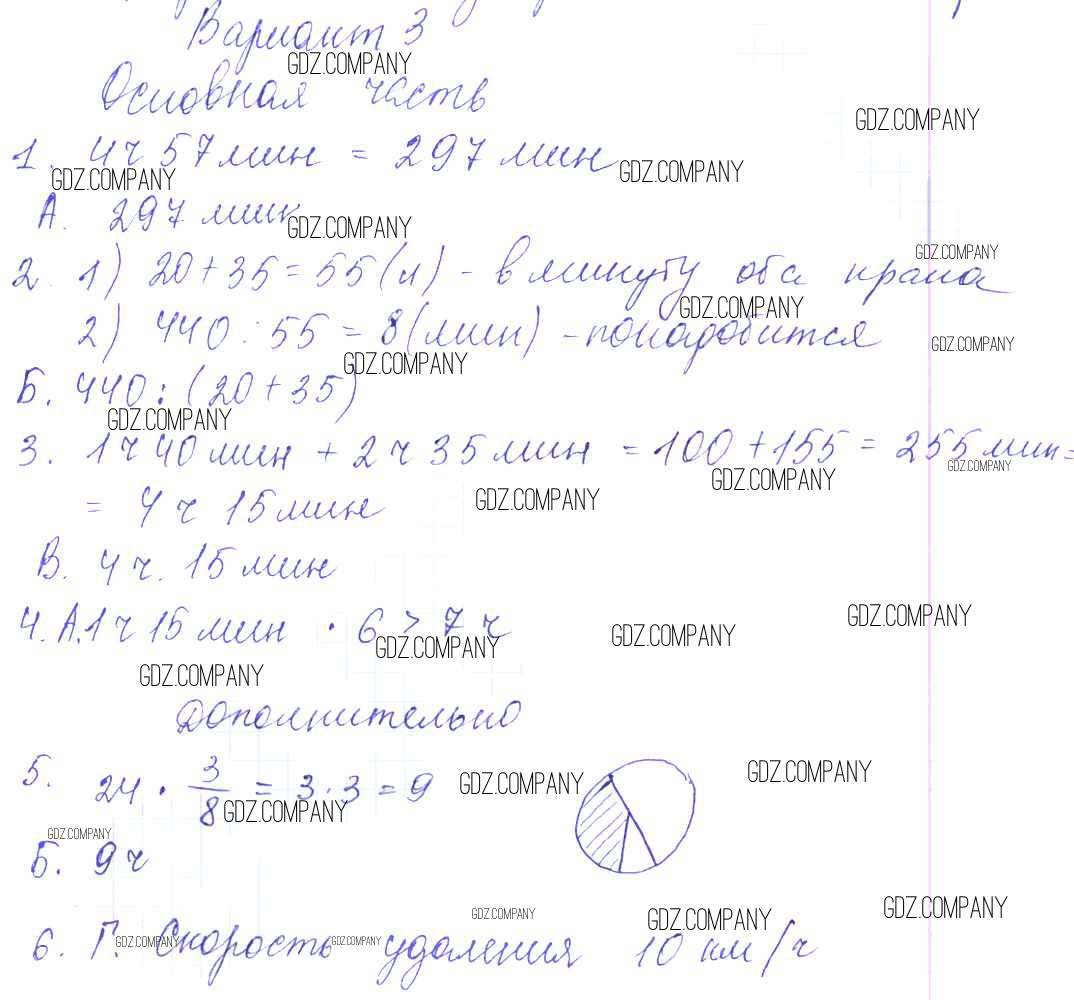 Вариант 3
GDZ.COMPANY
Основная часть
GDZ.COMPANY
1. 4ч 57 мин = 297 мин
GDZ.COMPANY GDZ.COMPANY
А. 297 мин
GDZ.COMPANY
GDZ.COMPANY
2. 1) 20 + 35 = 55 (л) - в минуту оба крана
GDZ.COMPANY
2) 440 : 55 = 8 (мин) - понадобится
GDZ.COMPANY
GDZ.COMPANY
Б. 440 : (20 + 35)
GDZ.COMPANY
3. 1ч 40 мин + 2ч 35 мин = 100 + 155 = 255 мин =
GDZ.COMPANY
GDZ.COMPANY
= 4ч 15 мин
GDZ.COMPANY
В. 4ч. 15 мин
GDZ.COMPANY
4. А. 1ч 15 мин · 6 > 7ч
GDZ.COMPANY
GDZ.COMPANY
GDZ.COMPANY
Дополнительно
GDZ.COMPANY
5. 24 · 3/8 = 3 · 3 = 9
GDZ.COMPANY
GDZ.COMPANY
GDZ.COMPANY
Б. 9ч
GDZ.COMPANY
GDZ.COMPANY GDZ.COMPANY
6. Г. Скорость удаления 10 км/ч
GDZ.COMPANY GDZ.COMPANY